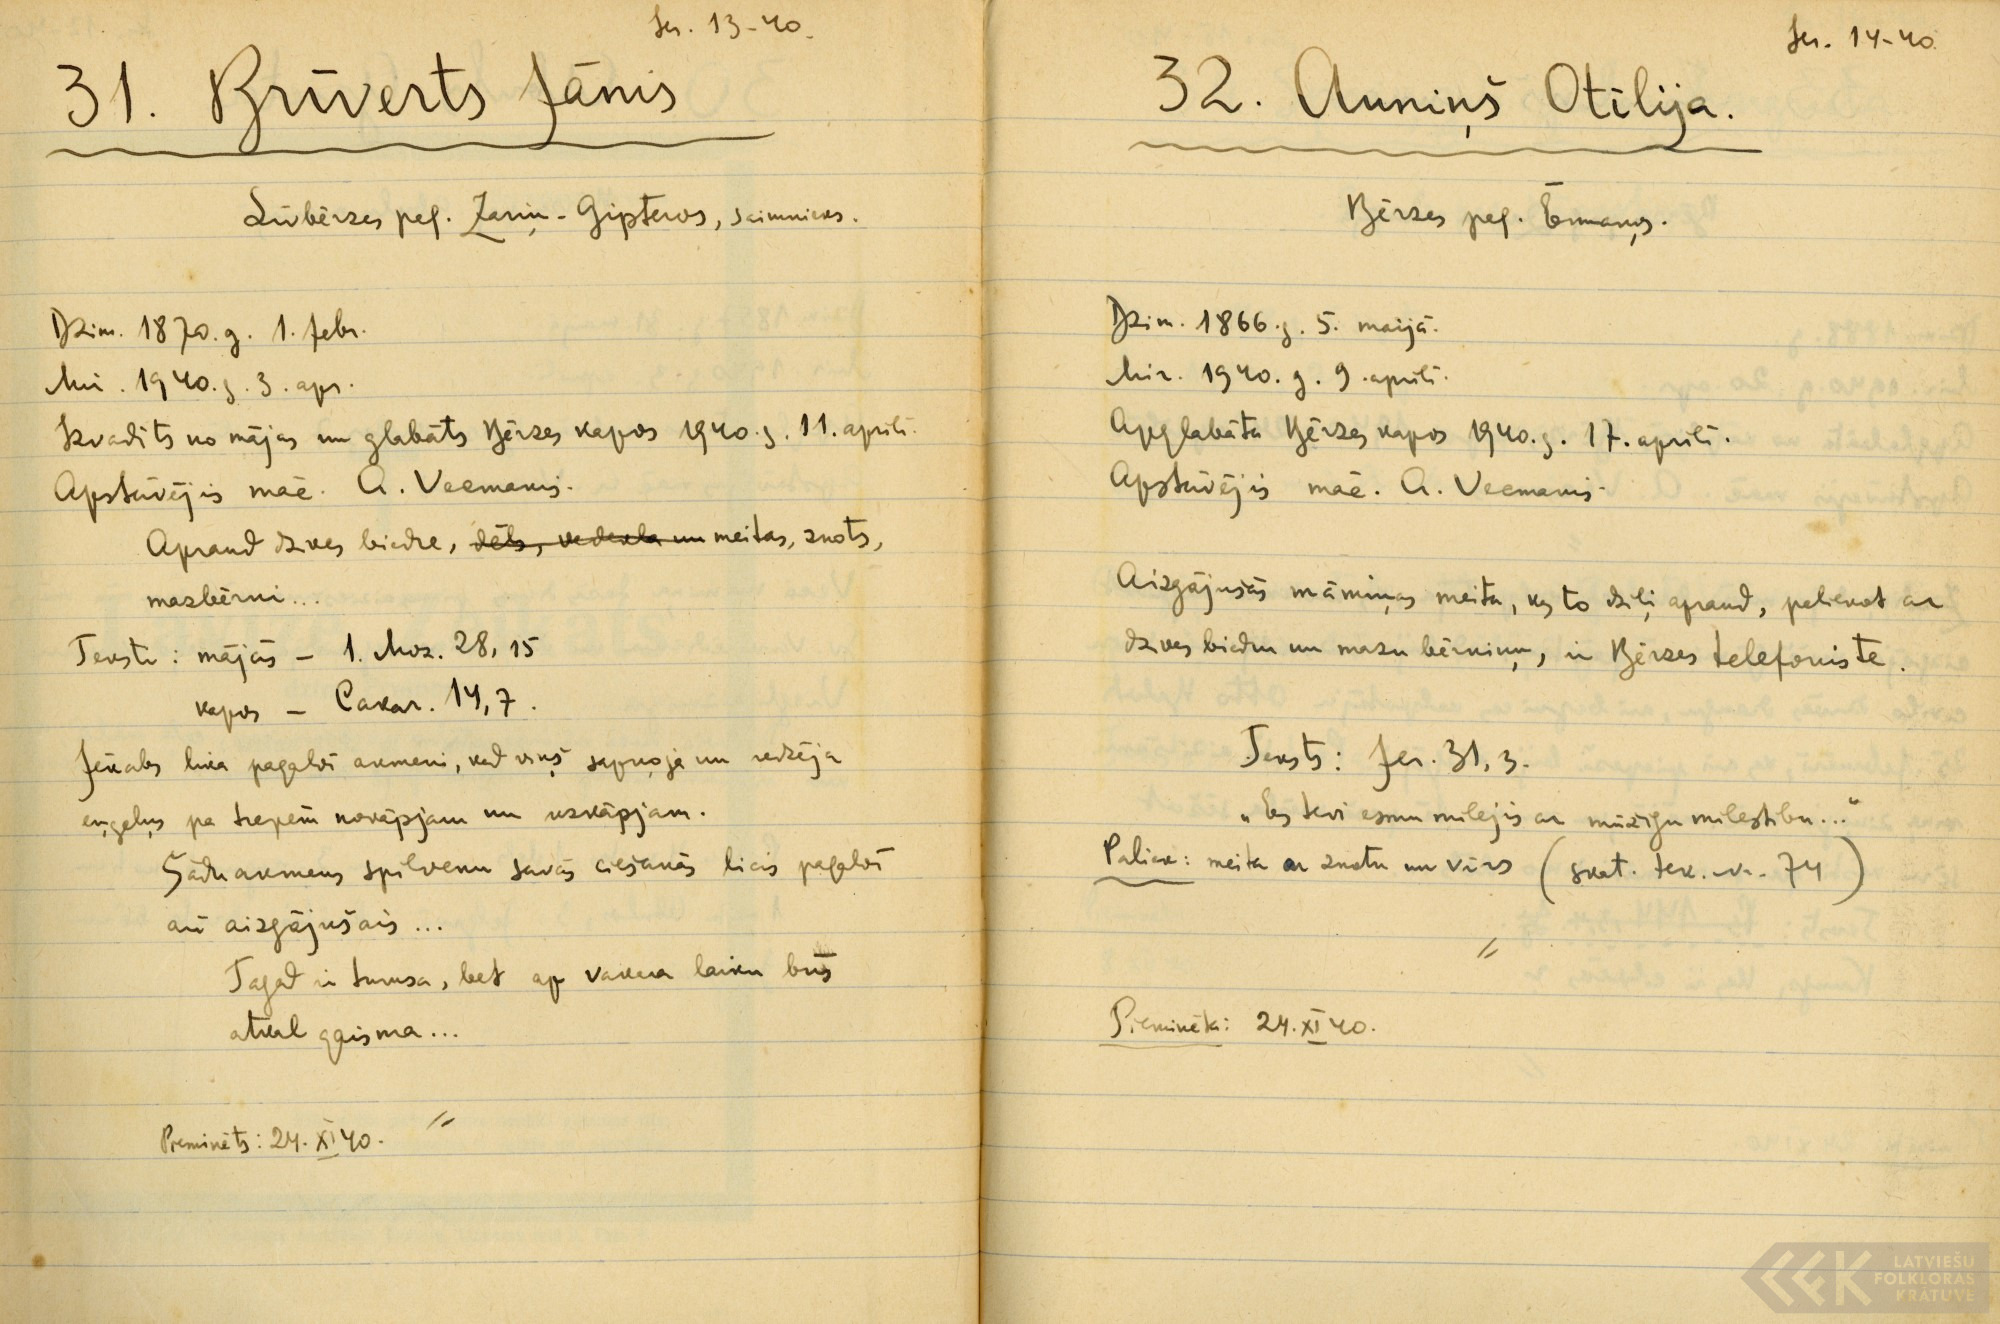 Ser. 13-40.
31. Brūverts Jānis
Līvbērzes pag. Zariņ-Gipteros, saimnieks.
Dzim. 1870. g. 1. febr.
Mir. 1940. g. 3. apr.
Izvadīts no mājas un glabāts Bērzes kapos 1940. g. 11. aprīlī.
Apstāvējis māc. A. Veemanis.
Apraud dzīves biedre, dēls, vedekla un meitas, znots,
mazbērni...
Teksti: mājās – 1. Moz. 28, 15
kapos – Cakar. 14, 7.
Jēkabs lika pagalvī akmeni, kad viņš sapņoja un redzēja
eņģeļus pa trepēm nokāpjam un uzkāpjam.
Šādu akmens spilvenu savās ciešanās licis pagalvī
arī aizgājušais...
Tagad ir tumsa, bet ap vakara laiku būs
atkal gaisma...
Pieminēts: 24. XI 40.
〃
Ser. 14-40.
32. Auniņš Otīlija.
Bērzes pag. Ērmaņos.
Dzim. 1866. g. 5. maijā.
Mir. 1940. g. 9. aprīlī.
Apglabāta Bērzes kapos 1940. g. 17. aprīlī.
Apstāvējis māc. A. Veemanis.
Aizgājušās māmiņas meita, kas to dziļi apraud, paliekot ar
dzīves biedru un mazu bērniņu, ir Bērzes telefoniste.
Teksts: Jer. 31, 3.
„Es tevi esmu mīlējis ar mūžīgu mīlestību..."
Paliek: meita ar znotu un vīrs (skat. tek. nr. 74)
〃
Pieminēta: 24. XI 40.
LATVIEŠU
FOLKLORAS
KRATUVE